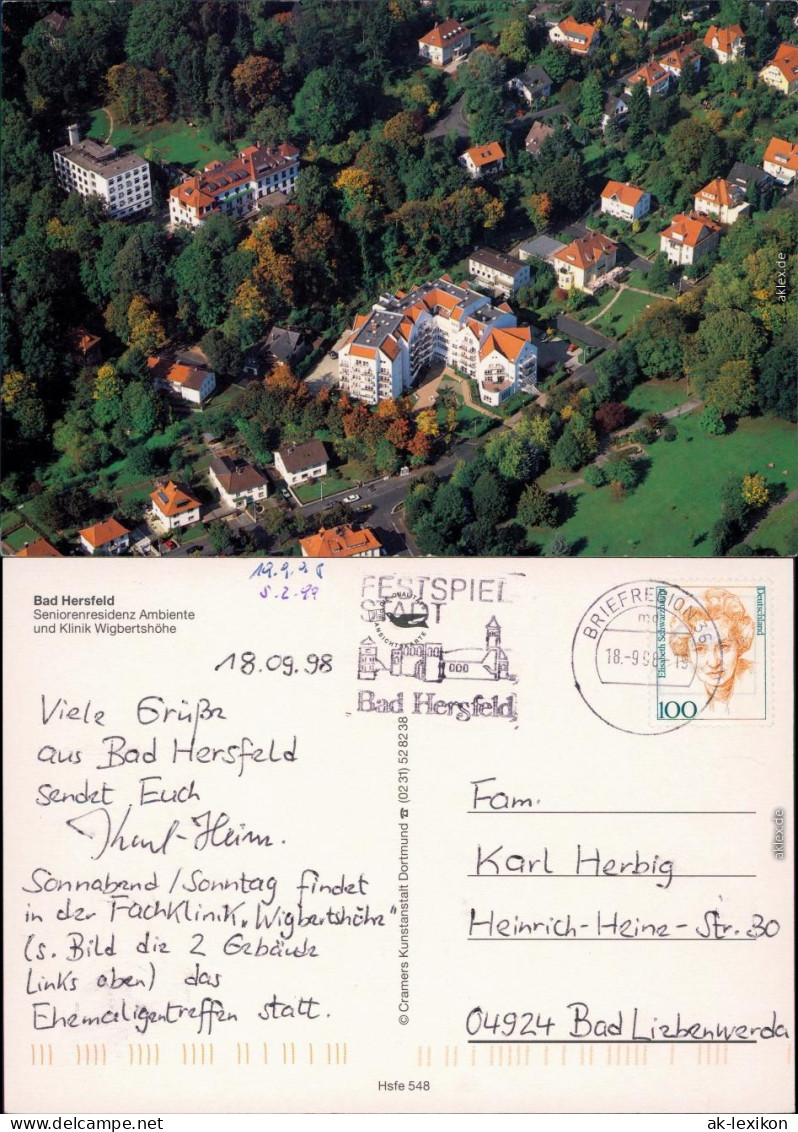 aklex.de
Bad Hersfeld
Seniorenresidenz Ambiente
und Klinik Wigbertshöhe
19.9.98
5.2.99
18.09.98
Viele Grüße
aus Bad Hersfeld
sendet Euch
Karl-Heinz.
Sonnabend/Sonntag findet
in der Fachklinik „Wigbertshöhe"
(s. Bild die 2 Gebäude
links oben) das
Ehemaligentreffen statt.
FESTSPIEL
STADT
ANSICHTSKARTE
Bad Hersfeld
BRIEFREGION 36
18.-9.98.-19
Elisabeth Schwarzhaupt
Deutschland
100
© Cramers Kunstanstalt Dortmund ☎ (02 31) 52 82 38
Fam.
Karl Herbig
Heinrich-Heine-Str. 30
04924 Bad Liebenwerda
aklex.de
Hsfe 548
www.aklex.de
ak-lexikon.com